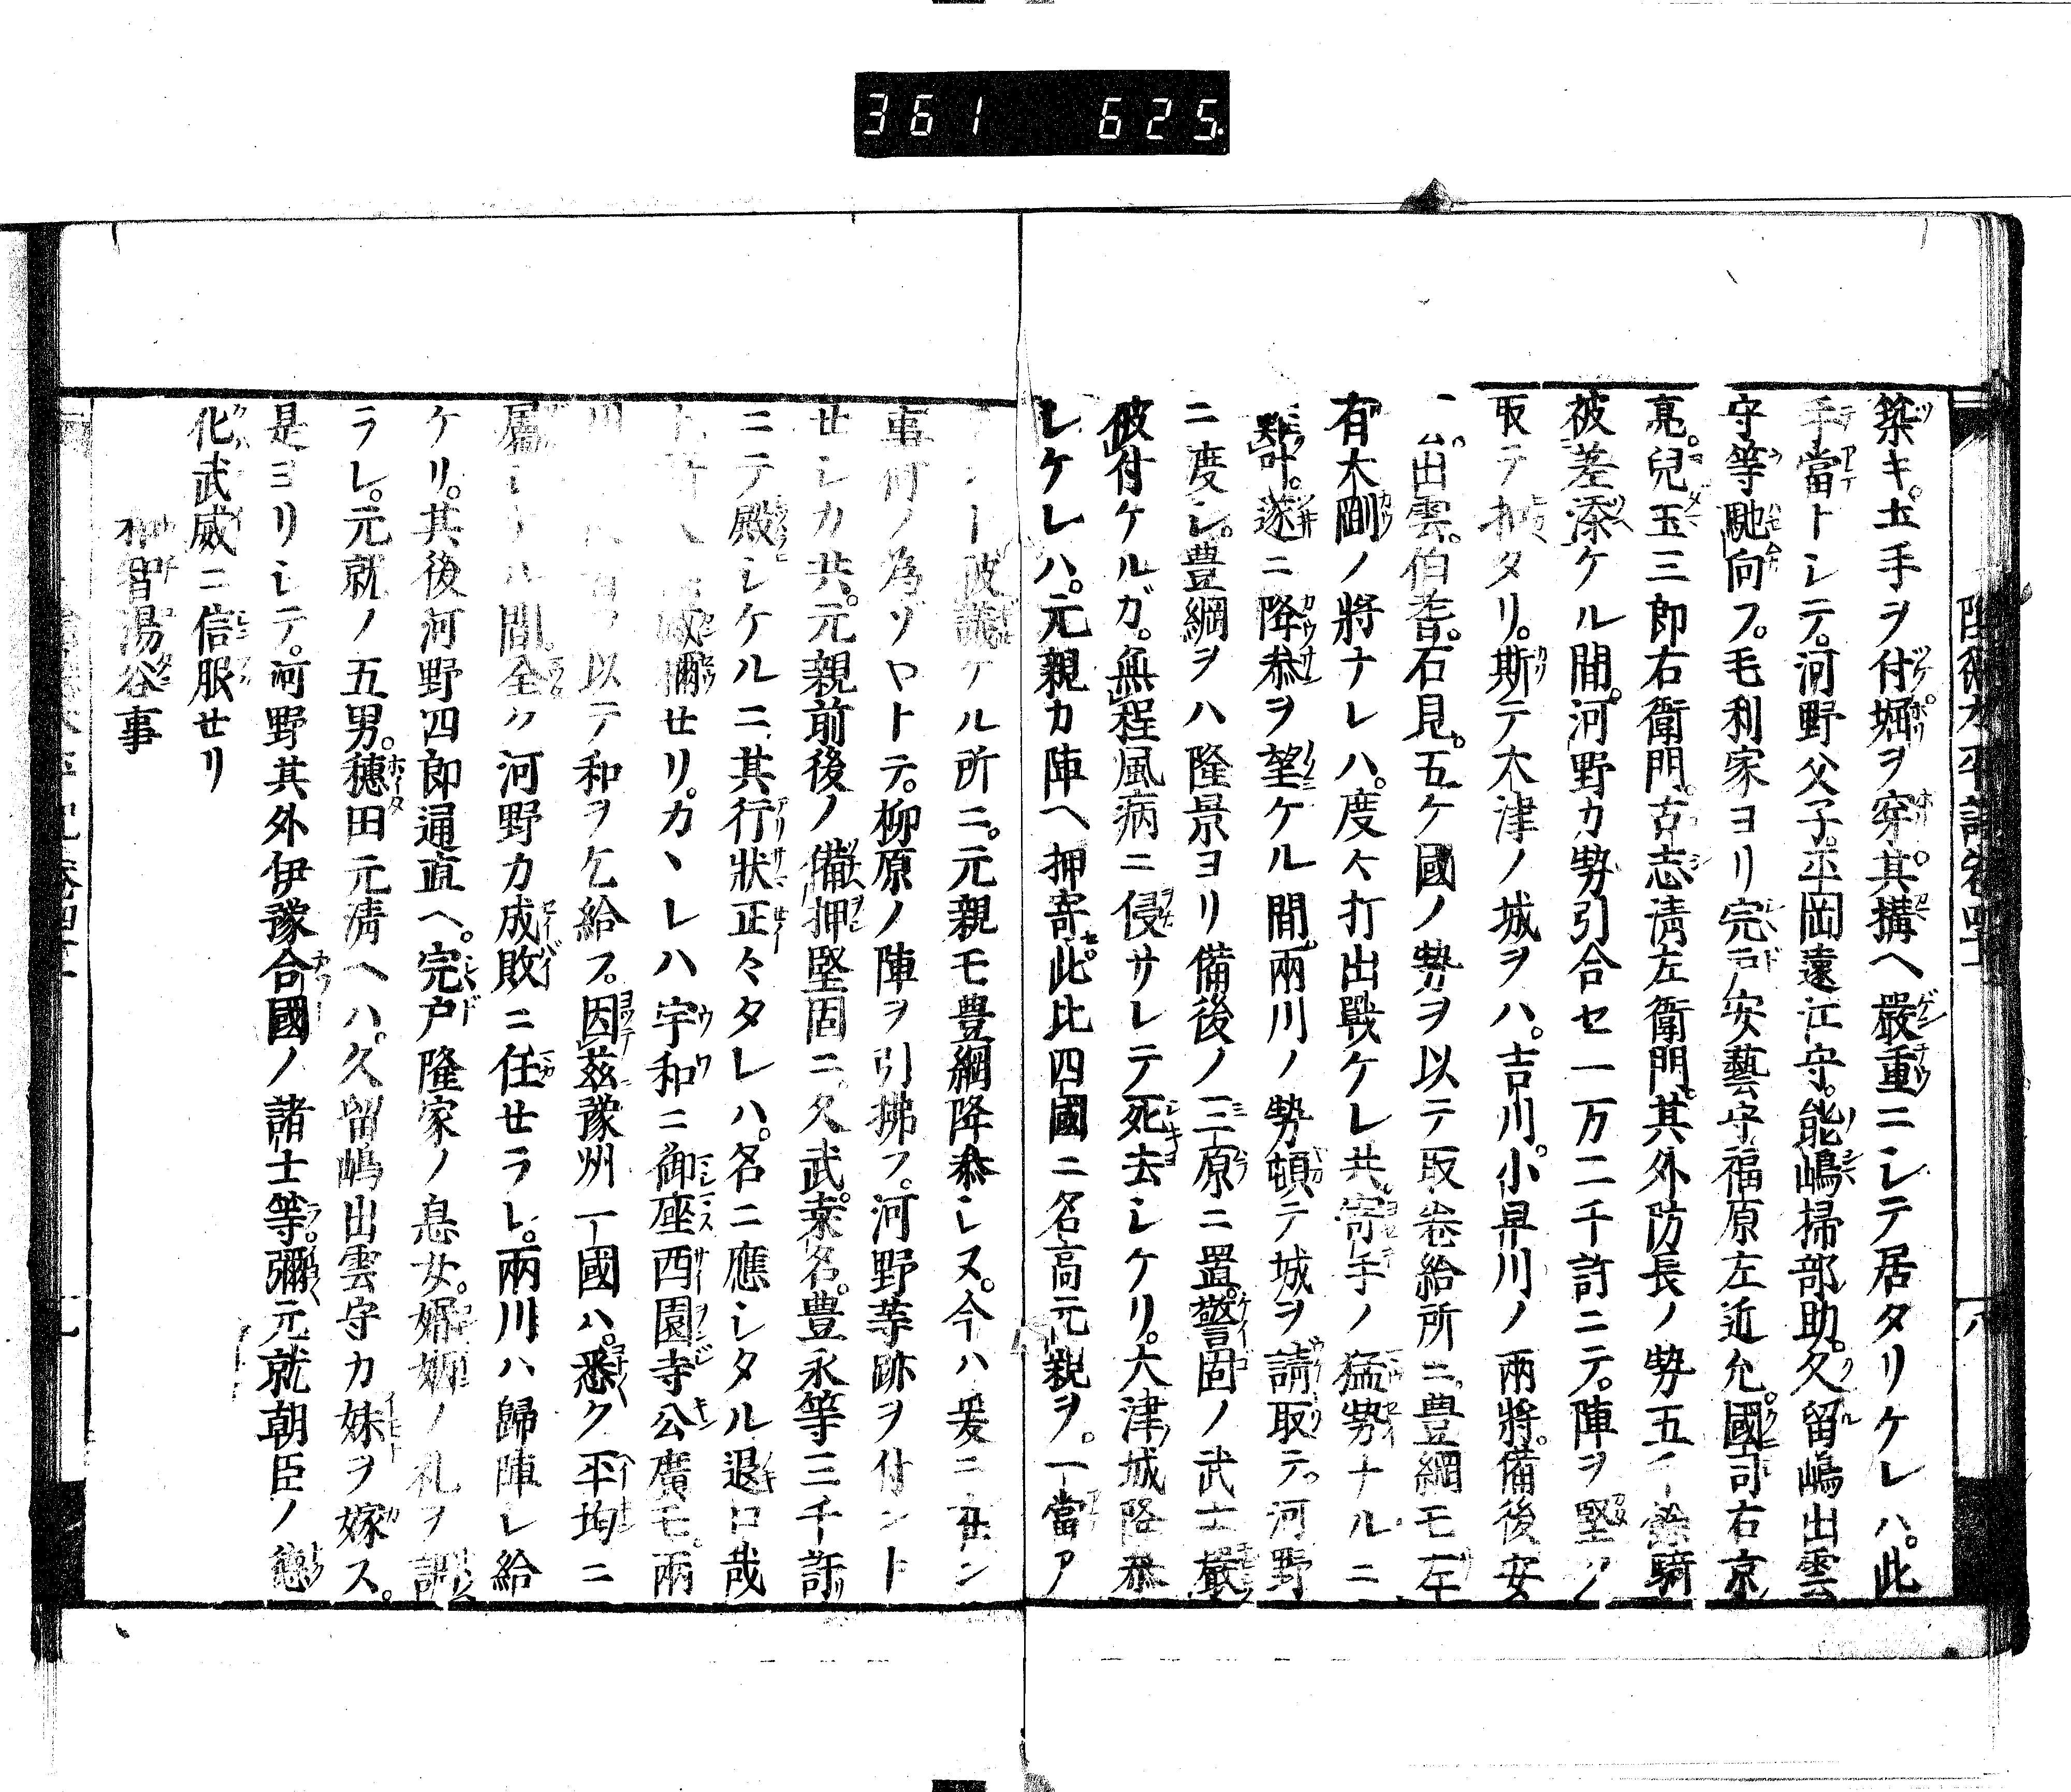 361 625
築キ。土手ヲ付堀ヲ穿。其搆ヘ嚴重ニシテ居タリケレハ。此
手當トシテ。河野父子。平岡遠江守。能嶋掃部助。久留嶋出雲
守等馳向フ。毛利家ヨリ完戸安藝守福原左近允。國司右京
亮。兒玉三郎右衛門。古志淸左衛門。其外防長ノ勢五千餘騎
被差添ケル間。河野カ勢引合セ一万二千許ニテ。陣ヲ堅メ
取テタリ。斯テ大津ノ城ヲハ。吉川。小早川ノ兩將。備後安
出雲。伯耆。石見。五ケ國ノ勢ヲ以テ取巻給所ニ。豊綱モ
有大剛ノ將ナレハ。度々打出戰ケレ共。寄手ノ猛勢ナルニ
難叶。遂ニ降叅ヲ望ケル間。兩川ノ勢頓テ城ヲ請取テ。河野
ニ度シ。豊綱ヲハ隆景ヨリ備後ノ三原ニ置。警固ノ武士嚴
被付ケルガ。無程風病ニ侵サレテ死去シケリ。大津城降叅
シケレハ。元親カ陣ヘ押寄。此比四國ニ名高元親ヲ。一當ア
ト被議ケル所ニ。元親モ豊綱降叅シヌ。今ハ爰ニ在ン
事何ノ爲ゾヤトテ。柳原ノ陣ヲ引拂フ。河野等跡ヲ付ント
セシカ共。元親前後ノ備押堅固ニ。久武。桒名。豊永等三千許
ニテ殿シケルニ。其行狀正々タレハ。名ニ應シタル退口哉
セリ。カヽレハ宇和ニ御座西園寺公廣モ。兩
川以テ和ヲ乞給フ。因茲豫州一國ハ。悉ク平均ニ
屬シケル間。全ク河野カ成敗ニ任セラレ。兩川ハ歸陣シ給
ケリ。其後河野四郎通直ヘ。完戸隆家ノ息女。婚姻ノ礼ヲ調
ラレ。元就ノ五男。穗田元淸ヘハ。久留嶋出雲守カ妹ヲ嫁ス。
是ヨリシテ。河野其外伊豫合國ノ諸士等。彌元就朝臣ノ德
化武威ニ信服セリ
和智湯谷事